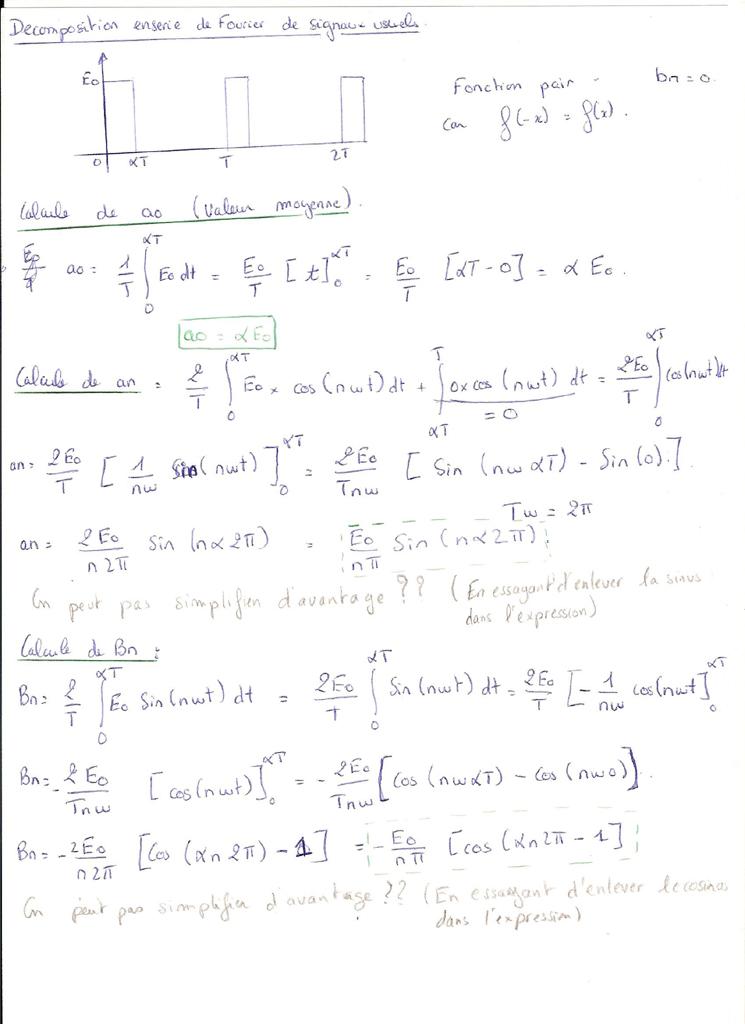 Decomposition enserie de Fourier de signaux usuels.
E0
0 αT T 2T
Fonction pair - bn = 0.
Car f(-x) = f(x).
Calcule de a0 (Valeur moyenne).
a0 = 1/T ∫_0^{αT} E0 dt = E0/T [t]_0^{αT} = E0/T [αT - 0] = α E0.
a0 = αE0
Calcule de an = 2/T ∫_0^{αT} E0 × cos(nωt) dt + ∫_{αT}^{T} 0×cos(nωt) dt = 2E0/T ∫_0^{αT} cos(nωt) dt
= 0
an = 2E0/T [1/nω sin(nωt)]_0^{αT} = 2E0/Tnω [Sin(nω αT) - Sin(0).].
Tω = 2π
an = 2E0/n2π Sin(nα2π) = E0/nπ Sin(nα2π).
On peut pas simplifier d'avantage ?? (En essayant d'enlever la sinus
dans l'expression)
Calcule de Bn :
Bn = 2/T ∫_0^{αT} E0 Sin(nωt) dt = 2E0/T ∫_0^{αT} Sin(nωt) dt = 2E0/T [-1/nω cos(nωt)]_0^{αT}
Bn = -2E0/Tnω [cos(nωt)]_0^{αT} = -2E0/Tnω [cos(nωαT) - cos(nω0)].
Bn = -2E0/n2π [Cos(αn2π) - 1] = -E0/nπ [cos(αn2π - 1]
On peut pas simplifier d'avantage ?? (En essayant d'enlever le cosinus
dans l'expression)